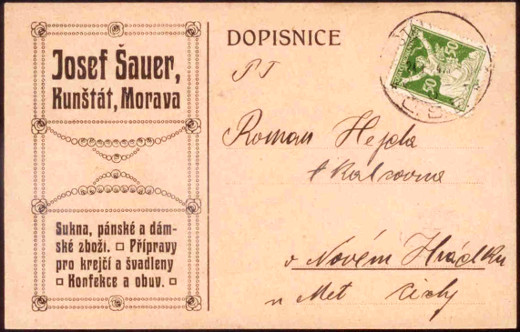 Josef Šauer,
Kunštát, Morava
Sukna, pánské a dám-
ské zboží. □ Přípravy
pro krejčí a švadleny
□ Konfekce a obuv. □
DOPISNICE
50 50
P T
Roman Hejda
v Novém Hrádku
n Met